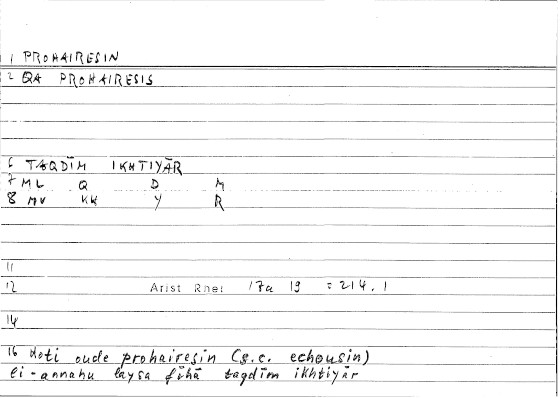 1 PROHAIRESIN
2 QA PROHAIRESIS
6 TAQDĪM IKHTIYĀR
7 ML Q D M
8 MV KH Y R
11
12 Arist Rhet 17a 19 = 214.1
14
16 hoti oude prohairesin (s.c. echousin)
li-annahu laysa fīhā taqdīm ikhtiyār